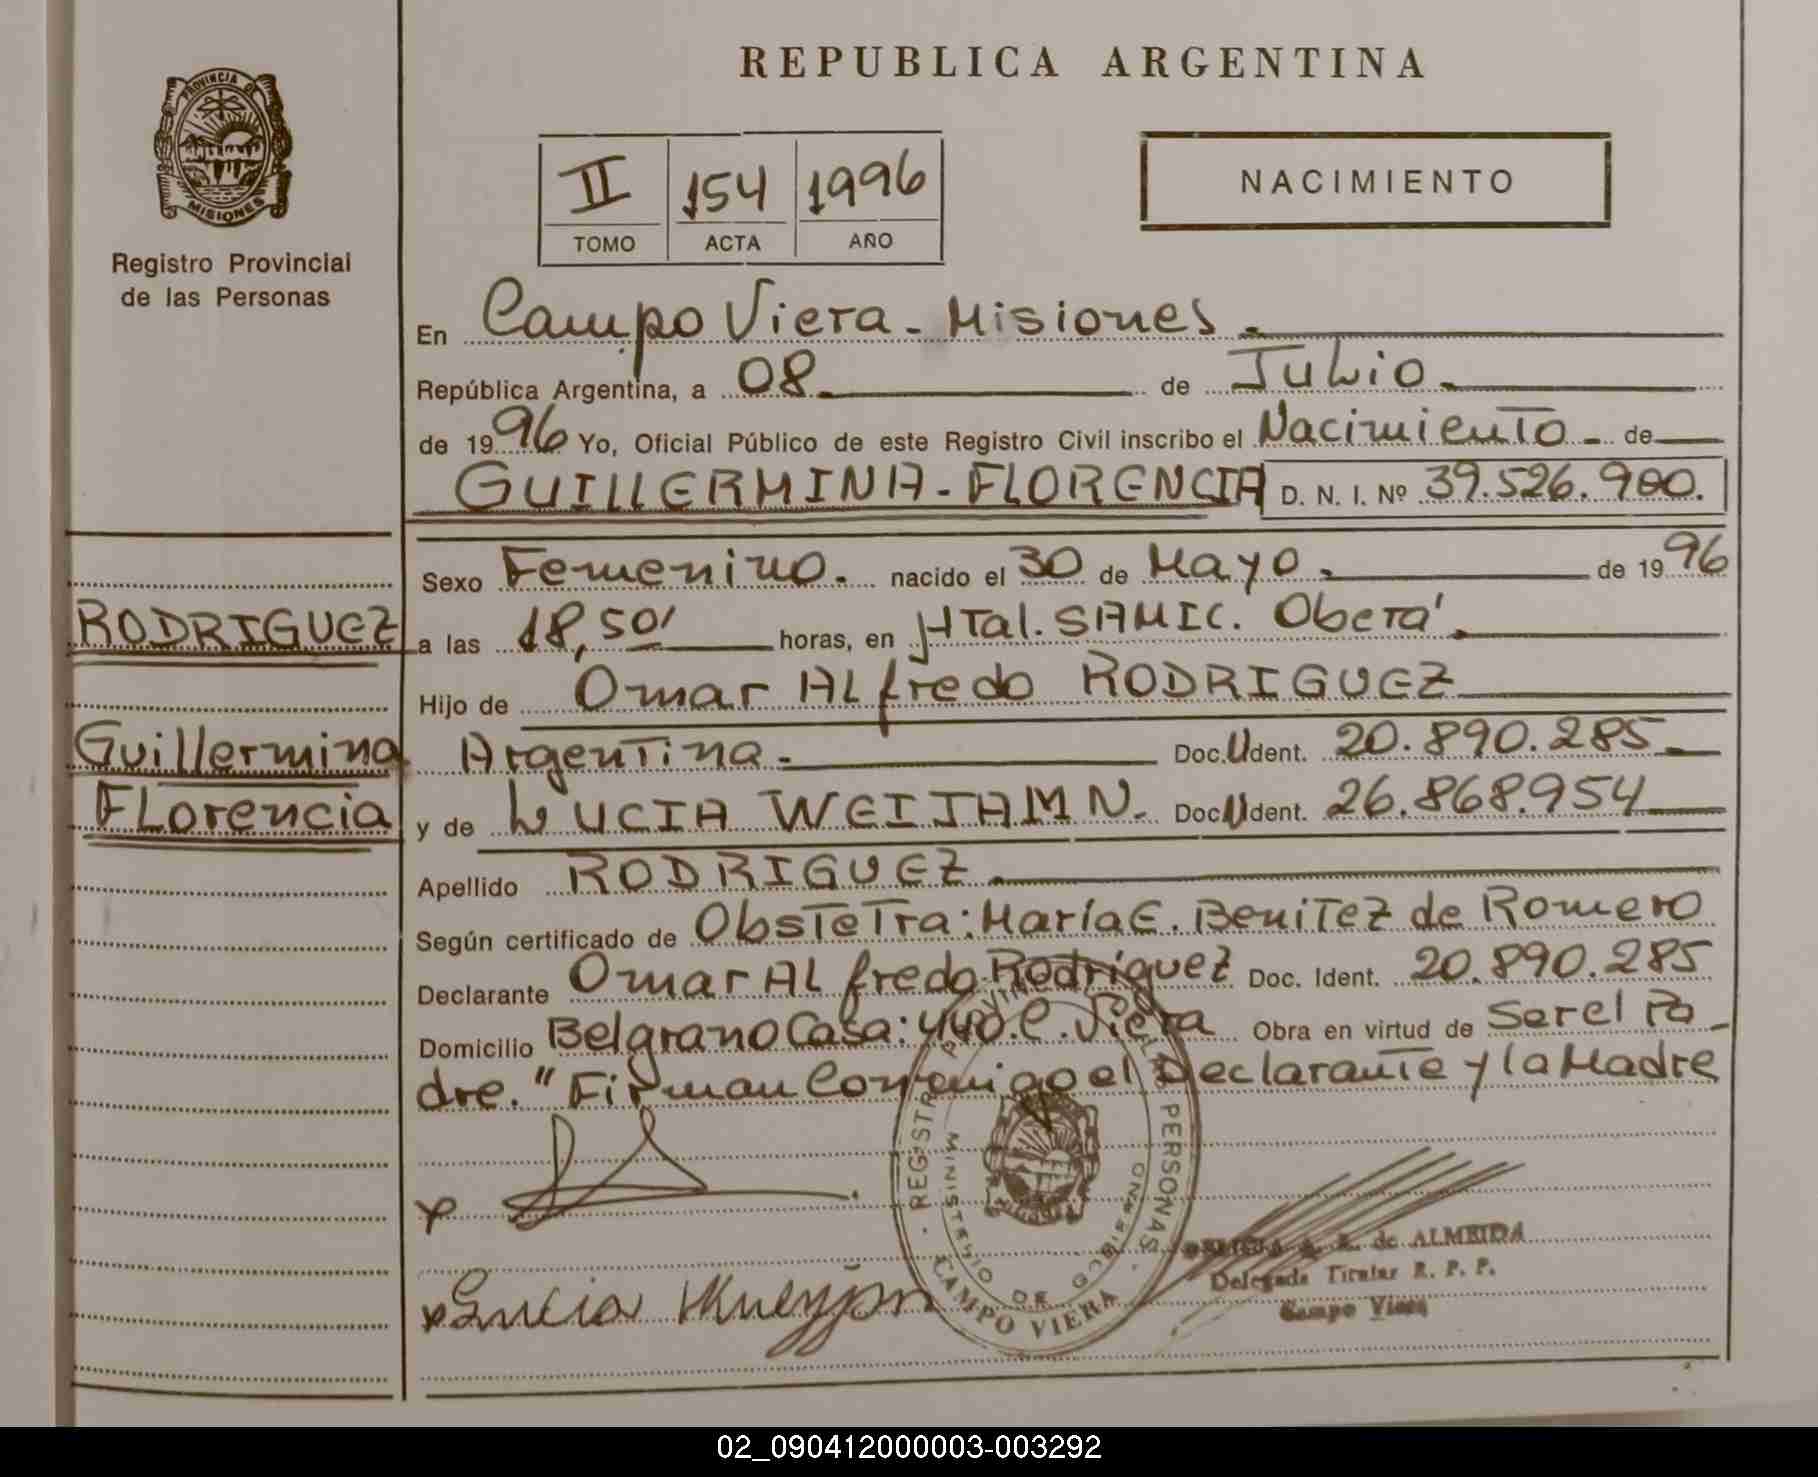 REPUBLICA ARGENTINA
PROVINCIA DE
MISIONES
Registro Provincial
de las Personas
II 154 1996
TOMO ACTA AÑO
NACIMIENTO
En Campo Viera - Misiones.
República Argentina, a 08 de Julio.
de 1996 Yo, Oficial Público de este Registro Civil inscribo el Nacimiento - de
GUILLERMINA - FLORENCIA D. N. I. Nº 39.526.900.
Sexo Femenino. nacido el 30 de Mayo. de 1996
RODRIGUEZ
a las 18,50' horas, en HTal. SAMIC. Oberá.
Hijo de Omar Alfredo RODRIGUEZ
Guillermina
Florencia
Argentina - Doc. Ident. 20.890.285 -
y de LUCIA WEIJAMN. Doc. Ident. 26.868.954
Apellido RODRIGUEZ.
Según certificado de Obstetra: María E. Benitez de Romero
Declarante Omar Alfredo Rodriguez Doc. Ident. 20.890.285
Domicilio Belgrano Casa: 440. C. Viera Obra en virtud de Ser el Pa-
dre." Firman Conmigo el Declarante y la Madre
x
x Lucia
REGISTRO PROVINCIAL DE LAS PERSONAS
MINISTERIO DE GOBIERNO
CAMPO VIERA
de ALMEIDA
Delegada Titular R. P. P.
Campo Viera
02_090412000003-003292